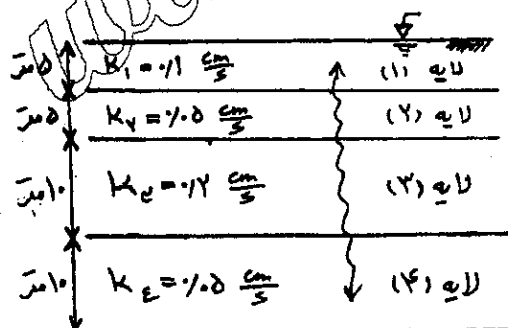 ۵ متر K₁ = ۰/۱ cm/s لایه (۱)
۵ متر K₂ = ۰/۰۵ cm/s لایه (۲)
۱۰ متر K₃ = ۰/۲ cm/s لایه (۳)
۱۰ متر K₄ = ۰/۰۵ cm/s لایه (۴)